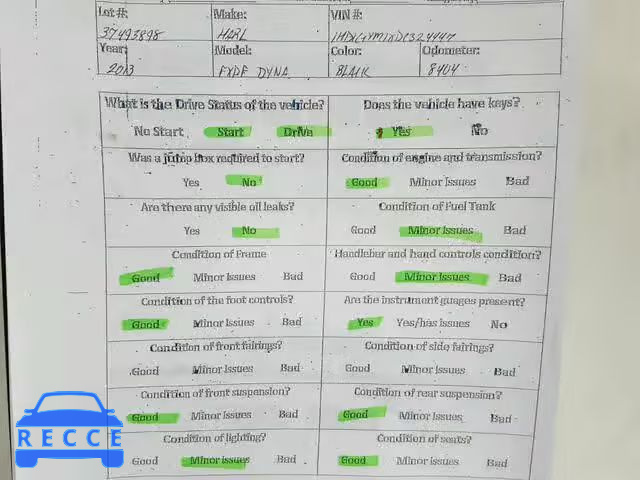 Lot #: Make: VIN #:
37493898 HARL
Year: Model: Color: Odometer:
2013 FXDF DYNA BLACK 8404
What is the Drive Status of the vehicle? Does the vehicle have keys?
No Start Start Drive Yes No
Was a jump box required to start? Condition of engine and transmission?
Yes No Good Minor Issues Bad
Are there any visible oil leaks? Condition of Fuel Tank
Yes No Good Minor Issues Bad
Condition of Frame Handlebar and hand controls condition?
Good Minor Issues Bad Good Minor Issues Bad
Condition of the foot controls? Are the instrument guages present?
Good Minor Issues Bad Yes Yes/has issues No
Condition of front fairings? Condition of side fairings?
Good Minor Issues Bad Good Minor Issues Bad
Condition of front suspension? Condition of rear suspension?
Good Minor Issues Bad Good Minor Issues Bad
Condition of lighting? Condition of seats?
Good Minor Issues Bad Good Minor Issues Bad
RECCE